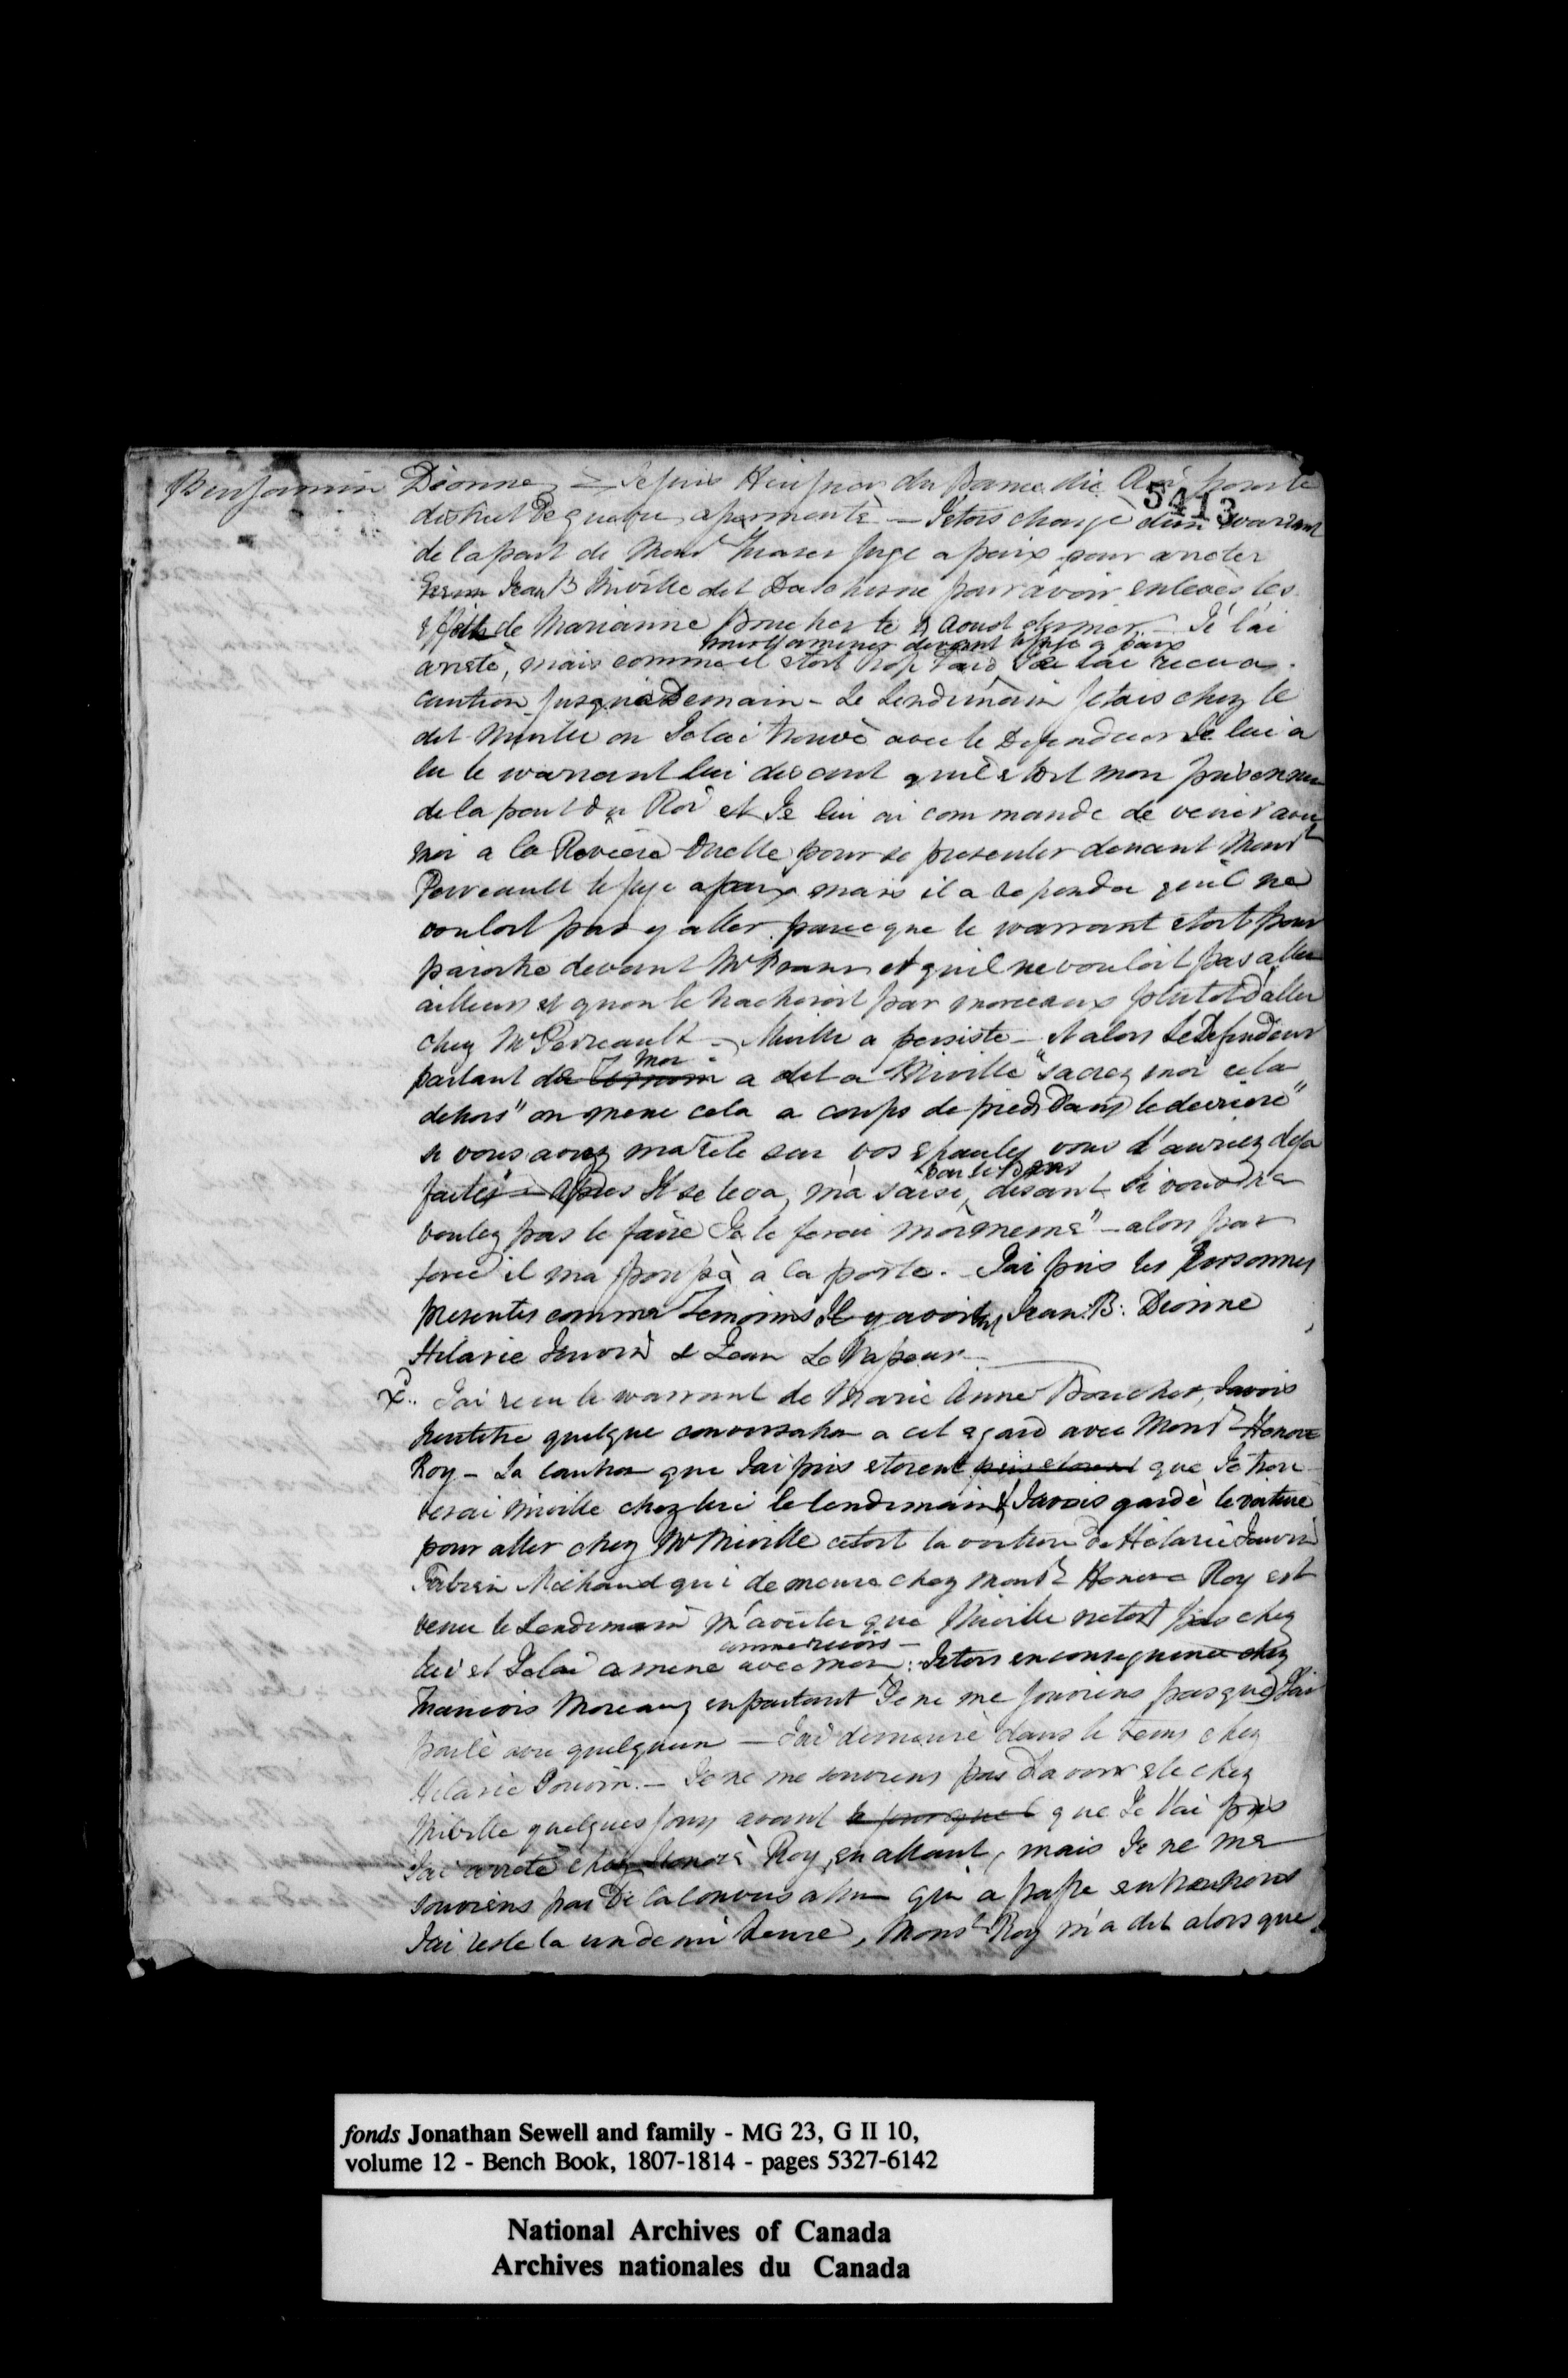 5413
Benjamin Dionne – Je suis Huissier du Banc du Roi pour le
district De quebec, apermenté – J'etois chargé d'un warrant
de la part de Monsr Fraser Juge a paix pour arreter
Jean B Miville dit Dechesne pour avoir enlevés les
effets de Marianne Boucher le 2 Aoust dernier – Je l'ai
pour l'amener devant le juge a paix
aresté, mais comme il etoit trop Tard Je lai recu a
caution Jusqu'a Demain – Le Lendemain Jetais chez le
dit Miville ou Je lai trouvé avec le Defendeur Je lui a
lu le warrant lui disant quil etoit mon prisonnier
de la part du Roi et Je lui ai commandé de venir avec
moi a la Riviere Ouelle pour se presenter devant Monsr
Perreault le juge a paix mais il a repondu quil ne
vouloit pas y aller parceque le warrant etoit pour
paroitre devant Mr Fraser et quil ne vouloit pas aller
ailleurs et quon le hacheroit par morceaux plutot d'aller
chez Mr Perreault – Miville a persisté – et alors Le Defendeur
moi
parlant de a dit a Miville "sacrez moi cela
dehors" on mene cela a coups de pieds Dans le derriere"
si vous aviez ma tete sur vos epaules vous l'auriez deja
par le bras
faites" – Apres Il se leva, m'a saisi, disant Si vous ne
voulez pas le faire Je le ferai moimeme" – alors par
force il ma pousé a la porte. – J'ai pris les Personnes
presentes comme Temoins Il y avoit Jean: B: Dionne
Hilarie & Jean Le Vapeur –
X. J'ai recu le warrant de Marie Anne Boucher, Javois
peutetre quelque conversation a cet egard avec Monsr Honore
Roy – La caution que Jai pris etoient que Je trou-
verai Miville chez lui le lendemain Javois gardé le voiture
pour aller chez Mr Miville cetoit la voiture de Hilarie
Fabien Michaud qui demeure chez Monsr Honore Roy est
venu le Lendemain m'avertir que Miville netoit pas chez
lui et Je lai amené avec moi: Jetois en consequence chez
Francois Moreau, en partant Je ne me souviens pas que Jai
parlé avec quelquun – Jai demeuré dans le tems chez
Hilarie – Je ne me souviens pas D'avoir ete chez
Miville quelques jours avant le jour que que Je l'ai pris
Jai arreté chez Honoré Roy, en allant, mais Je ne me
souviens pas De la conversation qui a passe entre nous
Jai resté la un demi heure, Monsr Roy m'a dit alors que
fonds Jonathan Sewell and family - MG 23, G II 10,
volume 12 - Bench Book, 1807-1814 - pages 5327-6142
National Archives of Canada
Archives nationales du Canada